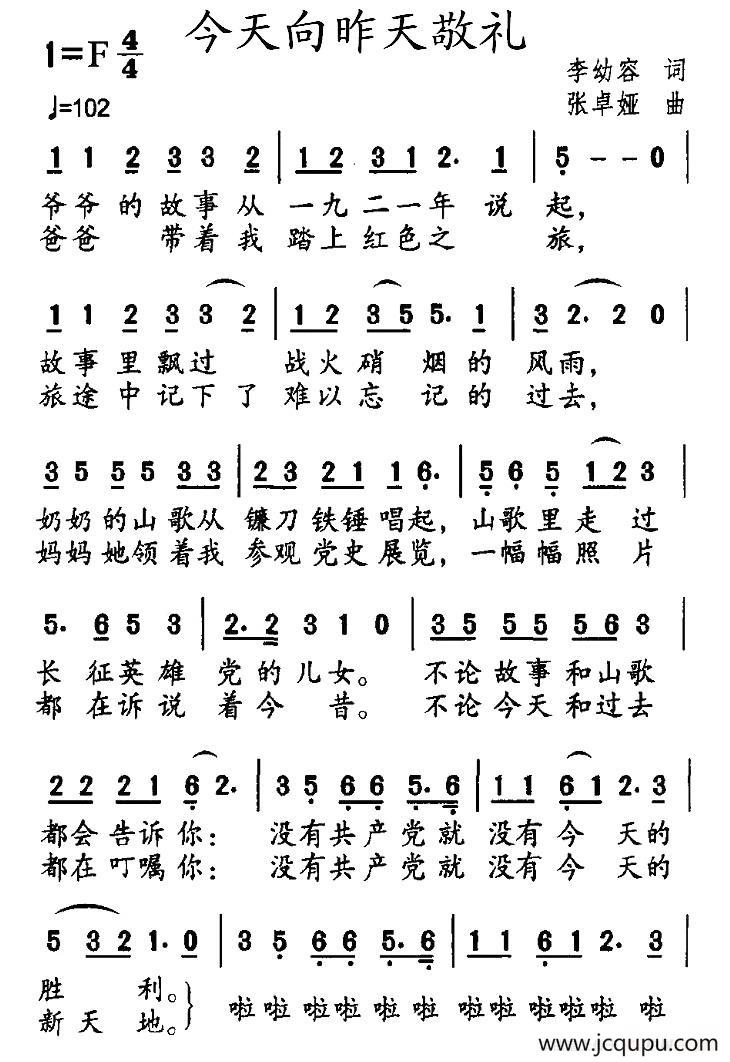 今天向昨天敬礼
1=F 4/4
♩=102
李幼容 词
张卓娅 曲
1 1 2 3 3 2 | 1 2 3 1 2. 1 | 5 - - 0 |
爷爷的故事从 一九二一年 说 起，
爸爸 带着我 踏上红色之 旅，
1 1 2 3 3 2 | 1 2 3 5 5. 1 | 3 2. 2 0 |
故事里飘过 战火硝 烟的 风雨，
旅途中记下了 难以忘 记的 过去，
3 5 5 5 5 3 3 | 2 3 2 1 1 6. | 5 6 5 1 2 3 |
奶奶的山歌从 镰刀铁锤唱起，山歌里走 过
妈妈她领着我 参观党史展览，一幅幅照 片
5. 6 5 3 | 2. 2 3 1 0 | 3 5 5 5 5 6 3 |
长 征英雄 党的儿女。 不论故事和山歌
都 在诉说 着今 昔。 不论今天和过去
2 2 2 1 6 2. | 3 5 6 6 5. 6 | 1 1 6 1 2. 3 |
都会告诉你：没有共产党就 没有今 天的
都在叮嘱你：没有共产党就 没有今 天的
5 3 2 1. 0 | 3 5 6 6 5. 6 | 1 1 6 1 2. 3 |
胜 利。 啦啦啦啦啦啦 啦啦啦啦啦 啦
新天 地。
www.jcqupu.com